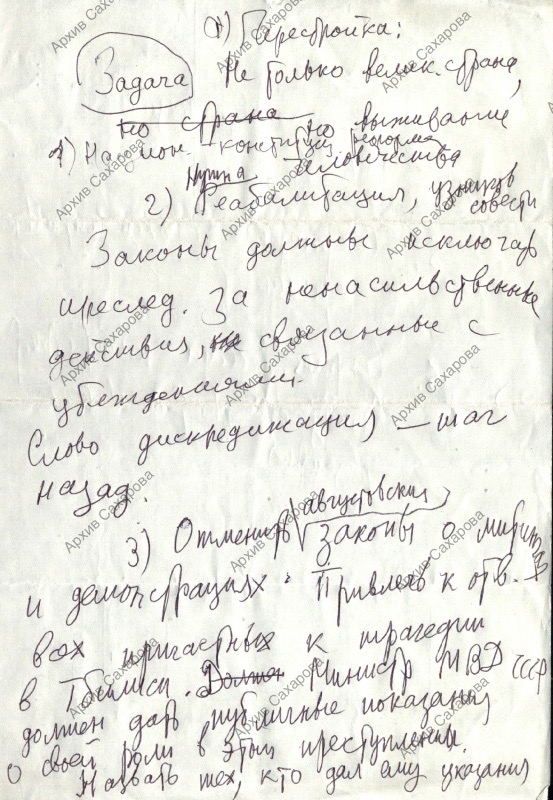 а) Перестройка:
Задача
Не только велик. страна,
но страна но выживание
человечества
1) Национ. – конституц. реформа
Нужна
2) Реабилитация, узников совести
Законы должны исключать
преслед. за ненасильственные
действия, не связанные с
убеждениями.
Слово дискредитация – шаг
назад.
августовские
3) Отменить законы о митингах
и демонстрациях. Привлечь к отв.
всех причастных к трагедии
в Тбилиси. Должен Министр МВД СССР
должен дать публичные показания
о своей роли в этом преступлении.
Назвать тех, кто дал ему указания
Архив Сахарова